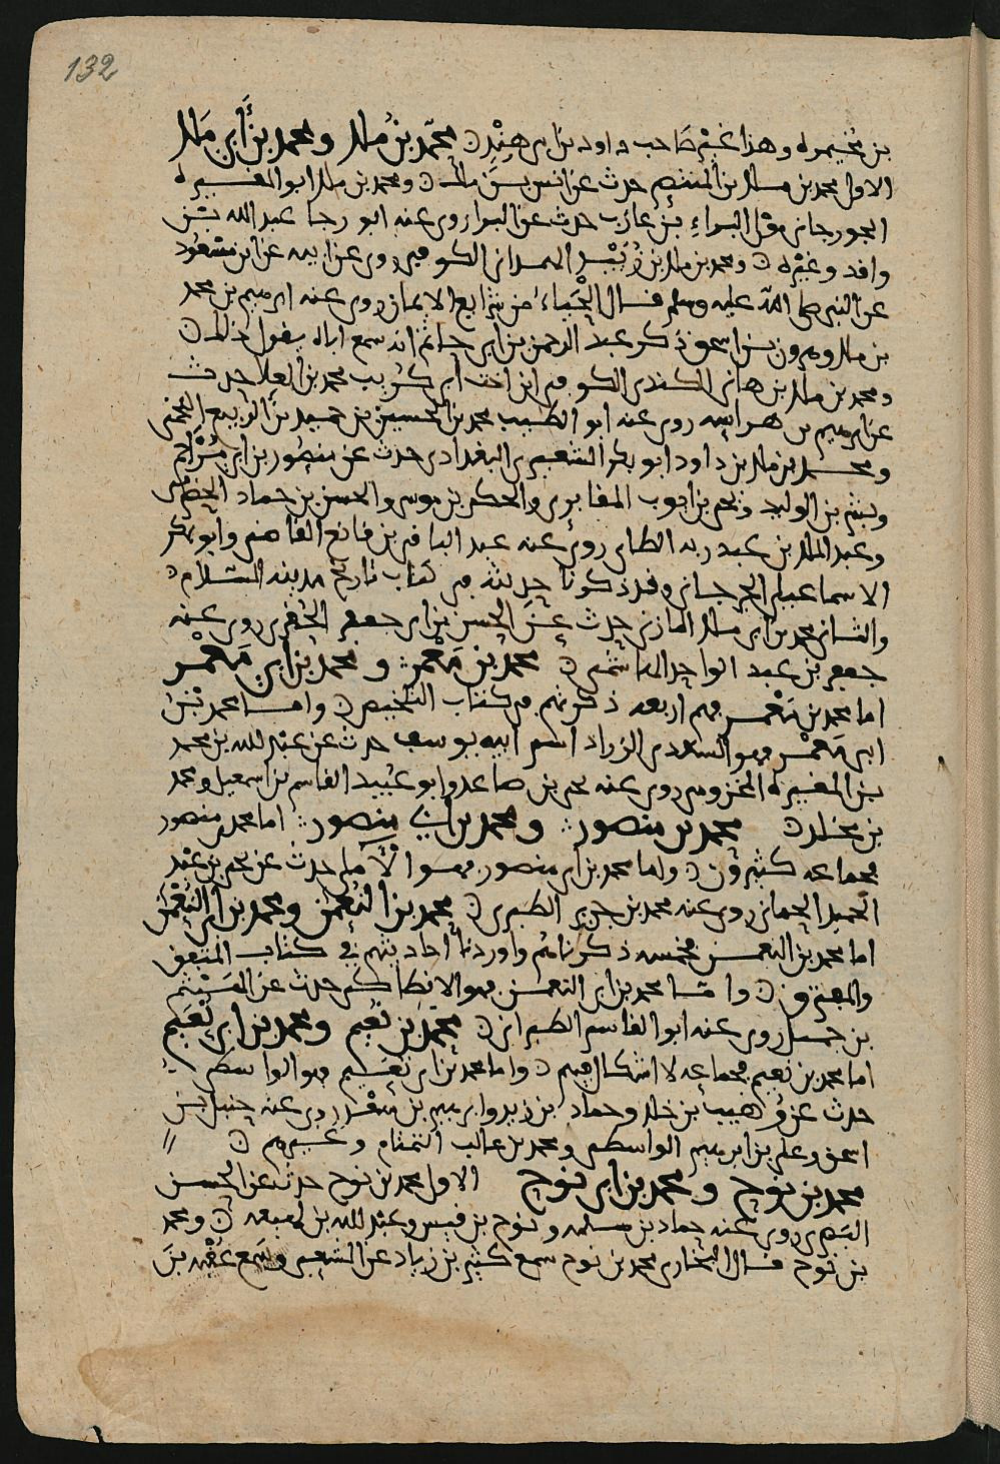 132
بن مخيمره وهذا غير صاحب داود بن ابي هند محمد بن مالك ومحمد بن أبي مالك
الاول محمد بن مالك بن المنتصر حدث عن انس بن ملك ومحمد بن مالك ابو المغيره
الجورجاني مولى البراء بن عازب حدث عن البرا روى عنه ابو رجا عبد الله بن
واقد وغيره ومحمد بن مالك بن زبيد الهمداني الكوفي روى عن ابيه عن ابن مسعود
عن النبي صلى الله عليه وسلم قال الحياء من شرايع الايمان روى عنه ابرهيم بن محمد
بن مالك وهرون بن اسحق ذكر عبد الرحمن بن ابي حاتم انه سمع اباه يقول ذلك
ومحمد بن مالك بن هانى الكندي الكوفي ابن اخت ابي كريب محمد بن العلا حدث
عن ابرهيم بن هراسه روى عنه ابو الطيب محمد بن الحسين بن حميد بن الربيع اللخمي
ومحمد بن مالك بن داود ابو بكر الشعيري البغدادي حدث عن منصور بن ابي مزاحم
وبشر بن الوليد ويحيى بن ايوب المقابري والحكم بن موسى والحسن بن حماد الحضرمي
وعبد الملك بن عبد ربه الطاي روى عنه عبد الباقي بن قانع القاضي وابو بكر
الاسماعيلي الجرجاني وقد ذكرنا حديثه في كتاب تاريخ مدينه السلام
والثاني محمد بن ابي مالك المازني حدث عن الحسن بن ابي جعفر الجفري روى عنه
جعفر بن عبد الواحد الهاشمي محمد بن معمر و محمد بن ابي معمر
اما محمد بن معمر فهم اربعه ذكرتهم في كتاب التلخيص واما محمد بن
ابي معمر فهو السعدي الزراد اسم ابيه يوسف حدث عن عبد الله بن محمد
بن المغيره المخزومي روى عنه يحيى بن صاعد وابو عبيد القاسم بن اسمعيل ومحمد
بن مخلد محمد بن منصور ومحمد بن ابي منصور اما محمد بن منصور
فجماعه كثيرون واما محمد بن ابي منصور فهو الآملي حدث عن يحيى بن عبد
الحميد الحماني روى عنه محمد بن جرير الطبري محمد بن النعمن ومحمد بن ابي النعمن
اما محمد بن النعمن فخمسه ذكرناهم واوردنا أحاديثهم في كتاب المتفق
والمفترق واما محمد بن ابي النعمن فهو الانطاكي حدث عن الهيثم
بن جميل روى عنه ابو القاسم الطبراني محمد بن نعيم ومحمد بن ابي نعيم
اما محمد بن نعيم فجماعه لا اشكال فيهم واما محمد بن ابي نعيم فهو الواسطي
حدث عن وهيب بن خالد وحماد بن زيد وابرهيم بن سعد روى عنه حنبل بن
اسحق وعلي بن ابرهيم الواسطي ومحمد بن غالب التمتام وغيرهم
محمد بن نوح و محمد بن ابي نوح الاول محمد بن نوح حدث عن الحسن
البصري روى عنه حماد بن سلمه ونوح بن قيس وعبد الله بن لهيعه ومحمد
بن نوح قال البخاري محمد بن نوح سمع كثير بن زياد عن الشعبي وسمع عقبه بن